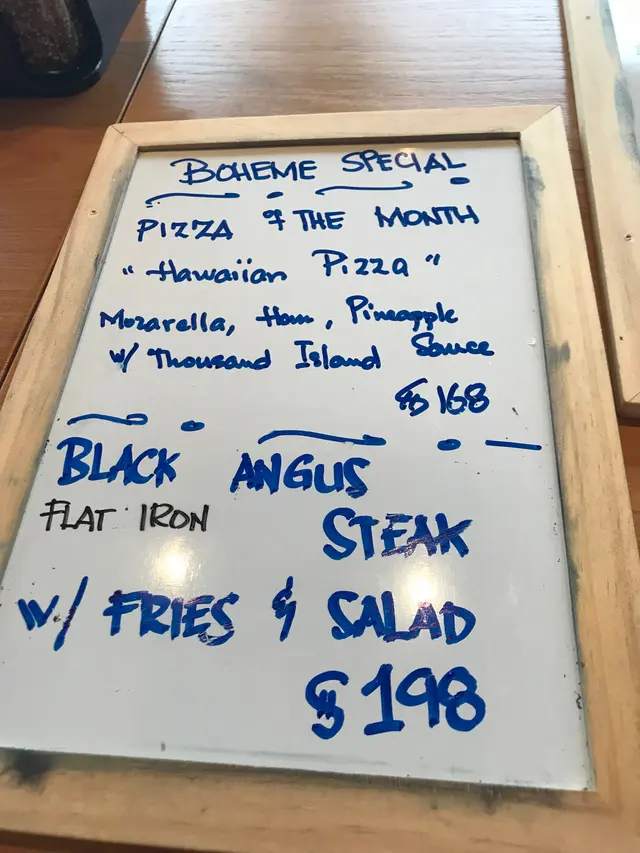 BOHEME SPECIAL
PIZZA of THE MONTH
"Hawaiian Pizza"
Mozarella, Ham, Pineapple
w/ Thousand Island Sauce
$168
BLACK ANGUS
FLAT IRON
STEAK
w/ FRIES & SALAD
$198